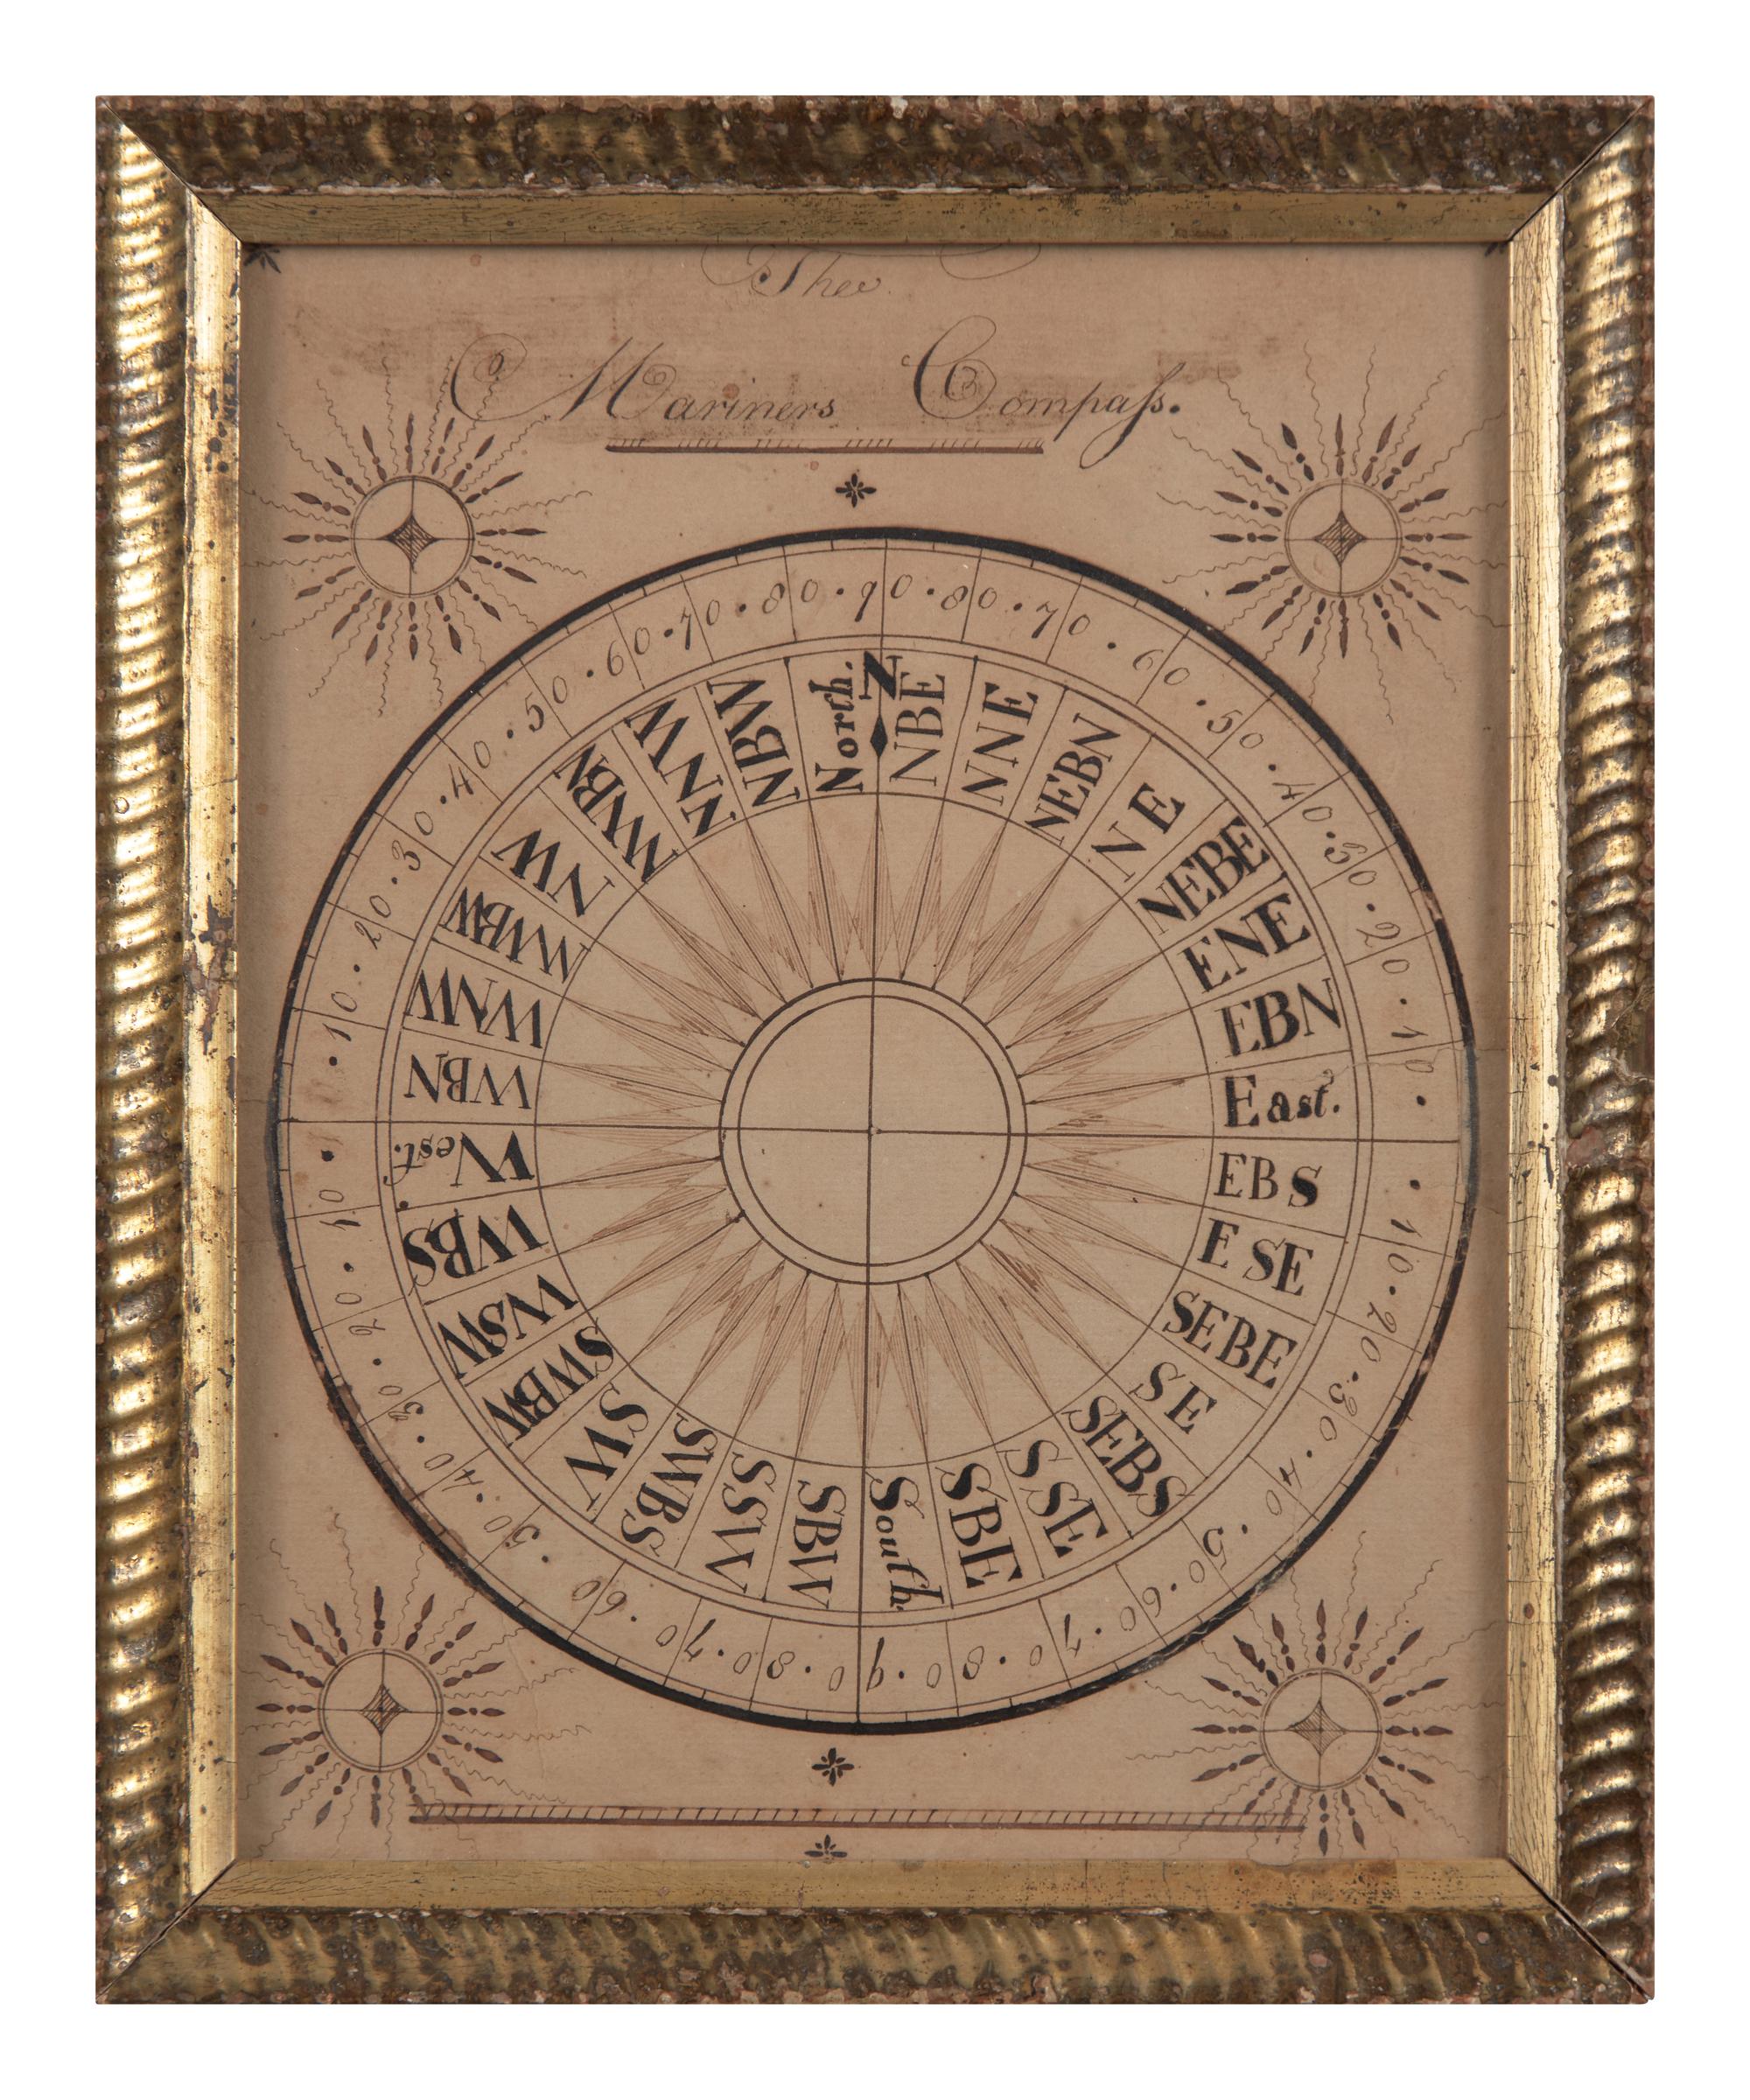 The
Mariners Compaſs.
90 · 80 · 70 · 60 · 50 · 40 · 30 · 20 · 10 · · 10 · 20 · 30 · 40 · 50 · 60 · 70 · 80 · 90 · 80 · 70 · 60 · 50 · 40 · 30 · 20 · 10 · · 10 · 20 · 30 · 40 · 50 · 60 · 70 · 80 ·
North.
N
NBE
NNE
NEBN
NE
NEBE
ENE
EBN
East.
EBS
ESE
SEBE
SE
SEBS
SSE
SBE
South.
SBW
SSW
SWBS
SW
SWBW
WSW
WBS
West.
WBN
WNW
NWBW
NW
NWBN
NNW
NBW